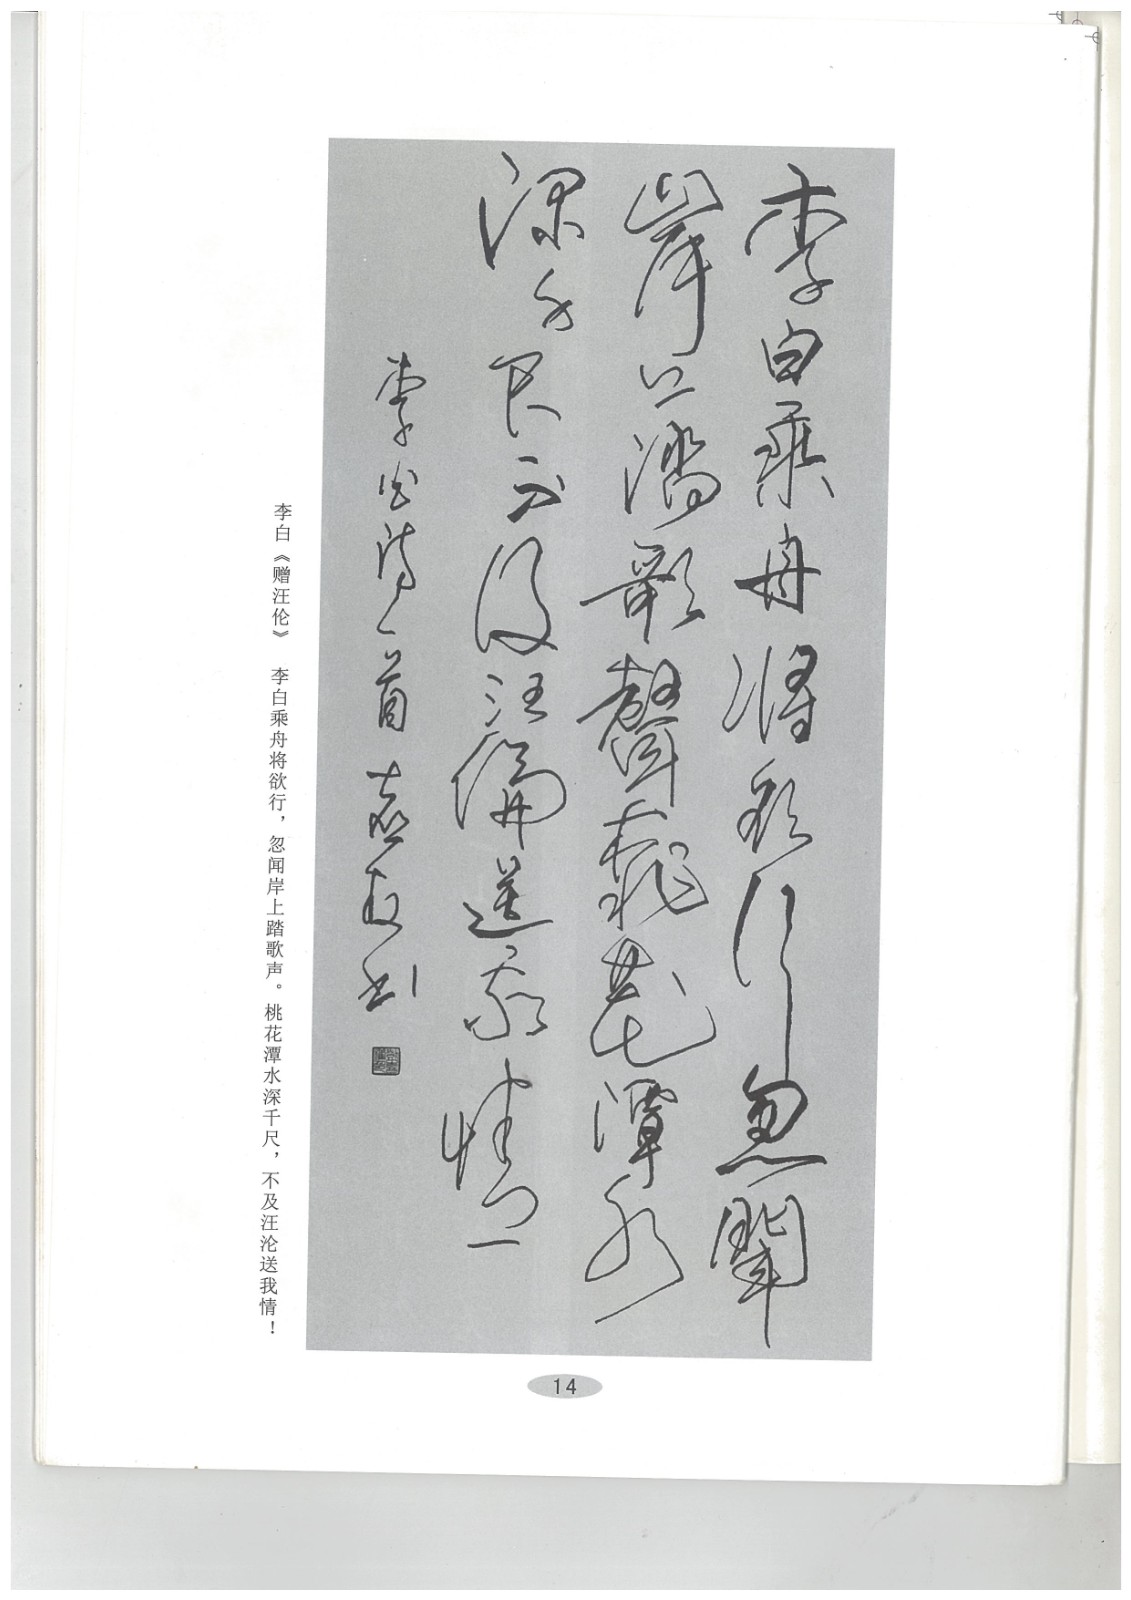 李白乘舟将欲行忽聞
岸上踏歌聲桃花潭水
深千尺不及汪倫送我情
李白诗一首 书
李白《赠汪伦》 李白乘舟将欲行，忽闻岸上踏歌声。桃花潭水深千尺，不及汪沦送我情！
14